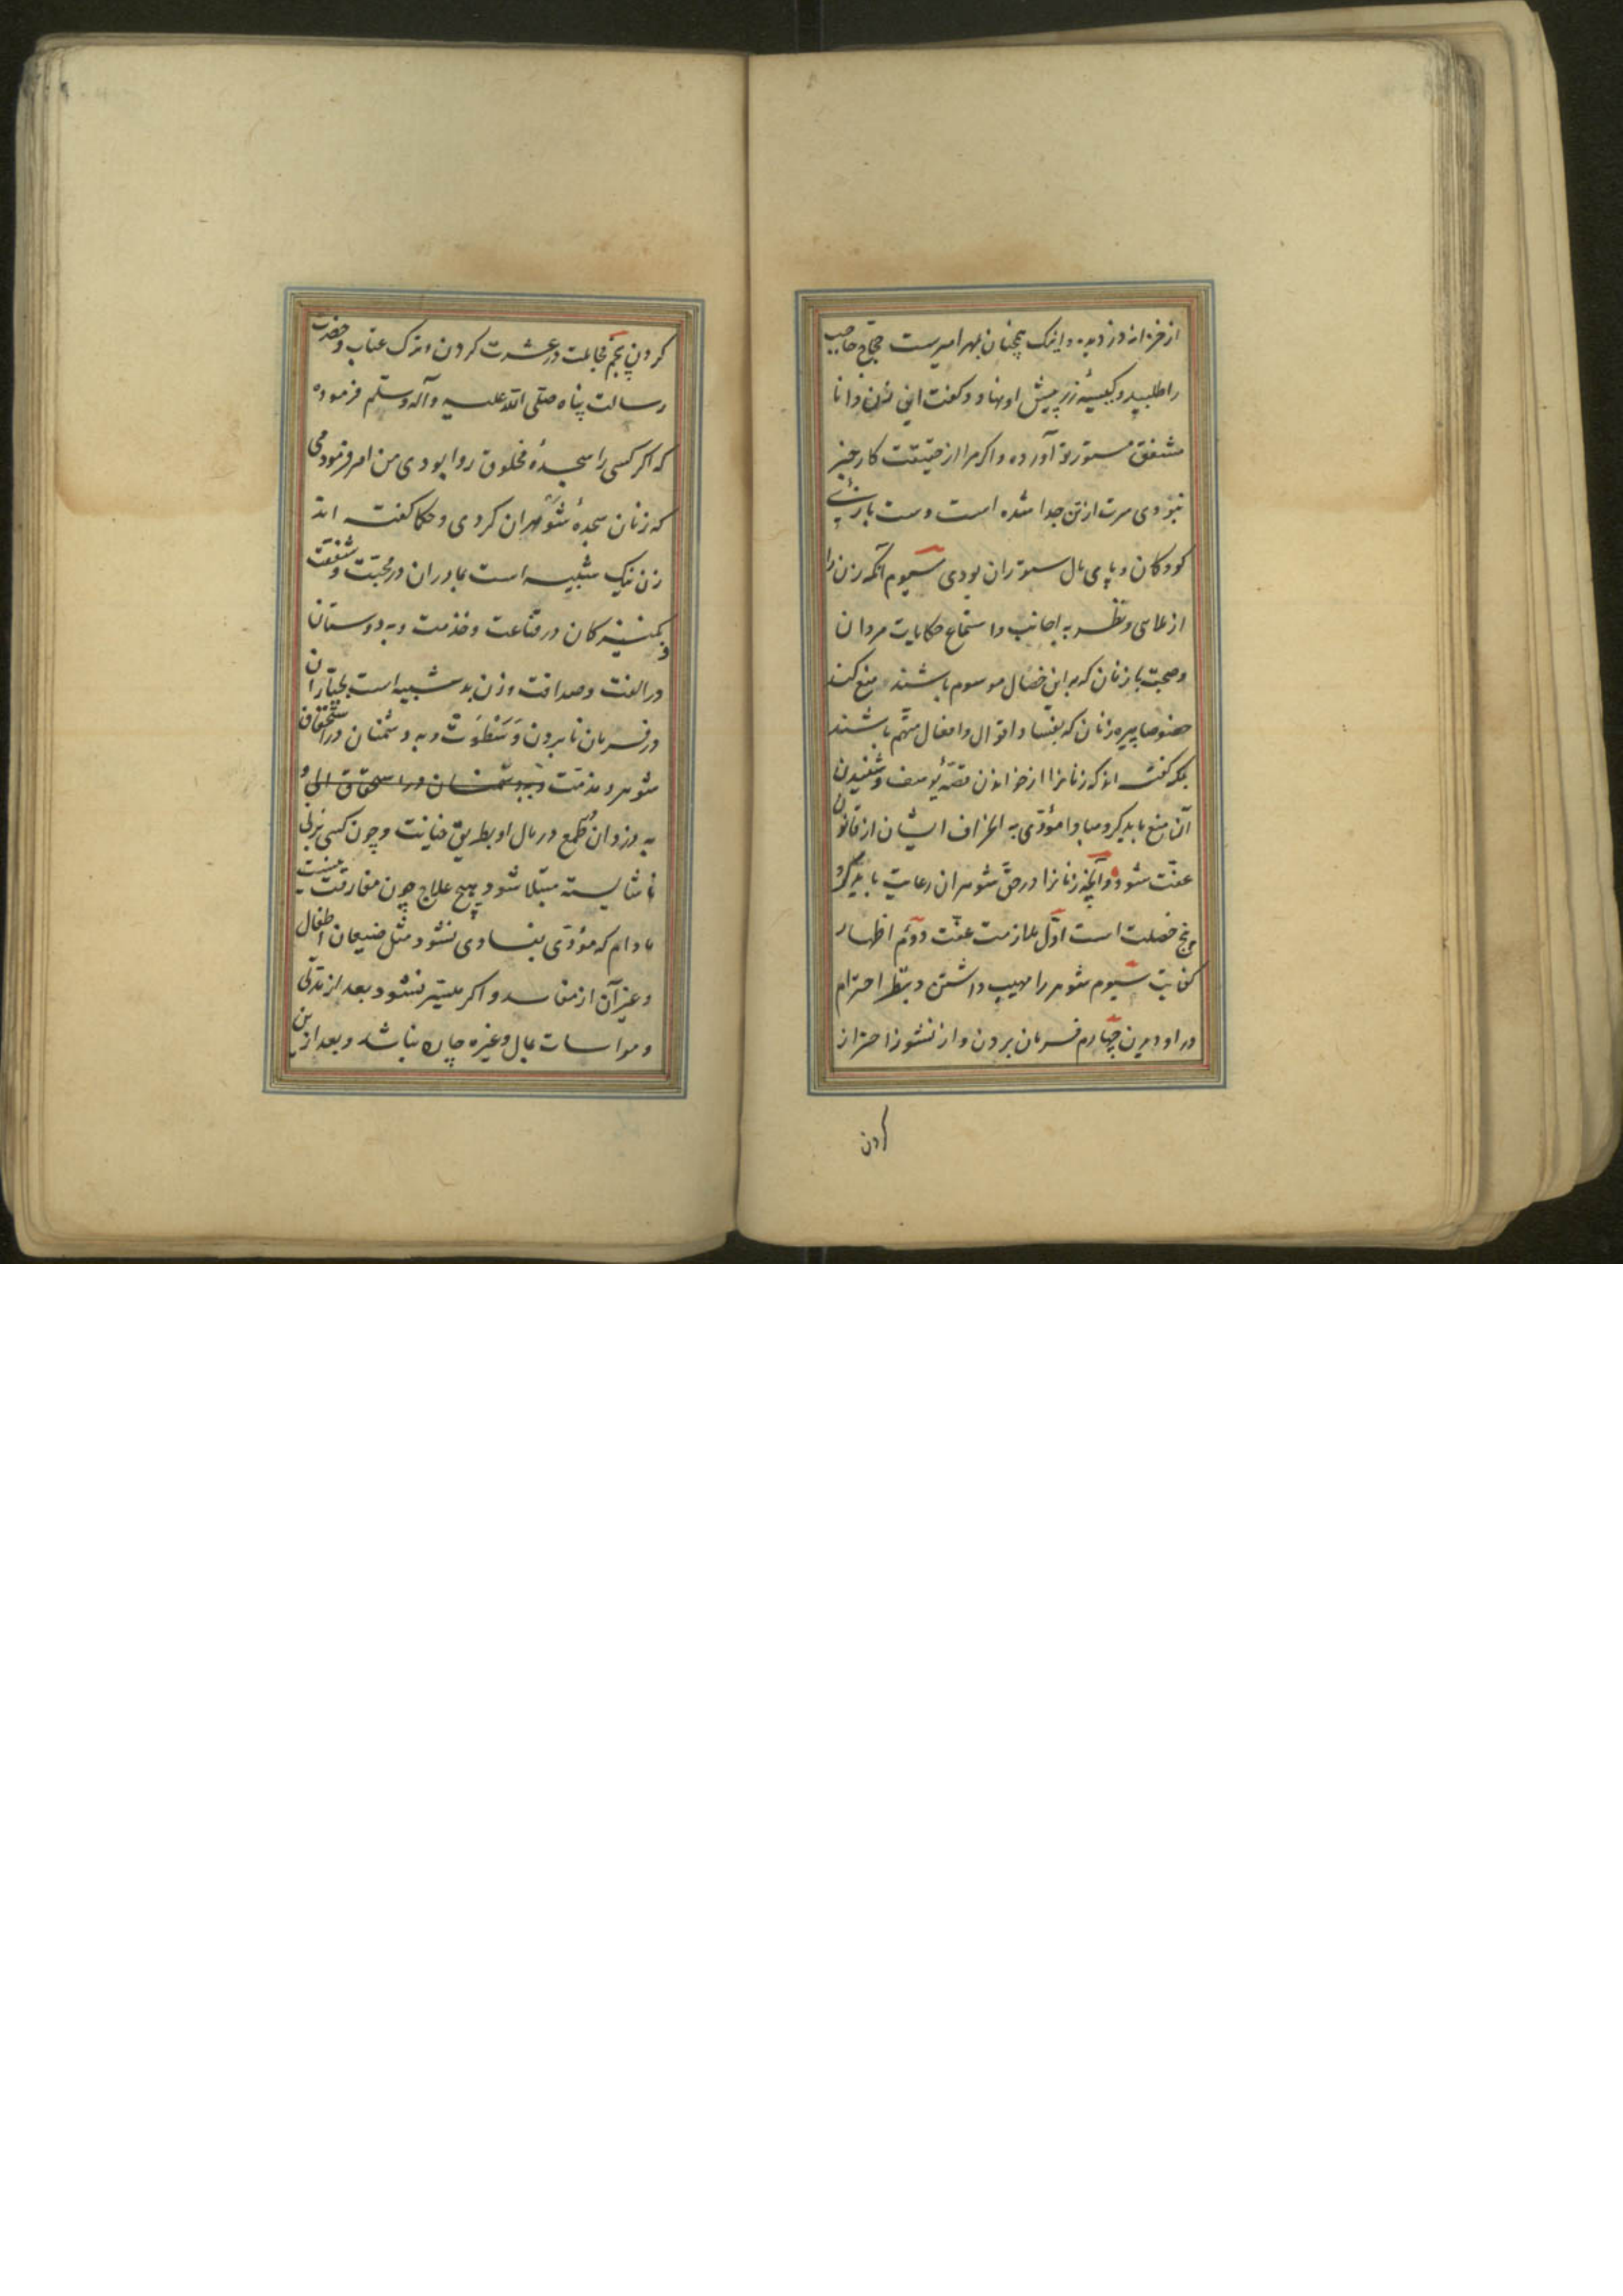 از خزانه دزدیده و اینک همچنان بمهر امیرست حجاج حاجب
را طلبید و کیسهٔ زر پیش او نهاد و گفت این زن دانا
مشفق مستور تو آورده و اکر مرا از حقیقت کار خبر
نبودی سرت از تن جدا شده است و ست بازیٔ
کودکان و پای مال ستوران بودی سیوم آنکه زن را
از ملاهی و نظر به اجانب و استماع حکایات مردان
و صحبت با زنان که به این خصال موسوم باشند منع کند
خصوصا پیره زنان که بفساد اقوال و افعال متهم باشند
بلکه گفته اند که زنانرا از خواندن قصهٔ یوسف و شنیدن
آن منع باید کرد مبادا مؤدی به انحراف ایشان از قانون
عفت شود و آنچه زنانرا در حق شوهران رعایت باید کرد
پنج خصلت است اول ملازمت عفت دوم اظهار
کفایت سیوم شوهر را مهیب داشتن و بنظر احترام
در او دیدن چهارم فرمان بردن و از نشوز احتراز
کردن
کردن پنجم مجاملت در عشرت کردن و ترک عتاب و حضرت
رسالت پناه صلی الله علیه و آله و سلم فرموده
که اکر کسی را سجدهٔ مخلوق روا بودی من امر فرمودمی
که زنان سجدهٔ شوهران کردی و حکما گفته اند
زن نیک شبیه است بمادران در محبت و شفقت
و بکنیزکان در قناعت و خدمت و به دوستان
در الفت و صداقت و زن بد شبیه است بجباران
در فرمان نابردن و سطوت و به دشمنان در استحقاق
شوهر و مذمت و به دشمنان در استحقاق الی و
به دزدان طمع در مال او بطریق خیانت و چون کسی بزنی
ناشایسته مبتلا شود هیچ علاج چون مفارقت نیست
مادام که مؤدی بفسادی نشود مثل ضیعان اطفال
و غیر آن از مفاسد و اکر میسر نشود بعد از تدنی
و مواسات بمال و غیره چاره نباشد و بعد ازین